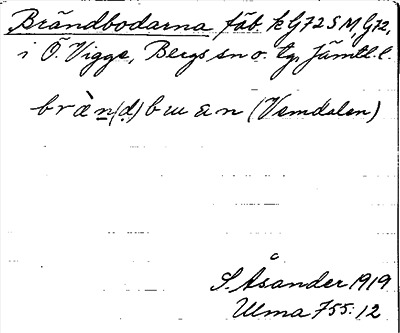 Brändbodarna fäb. k G72 S M, G72,
i Ö. Vigge, Bergs sn o. tg. Jämtl. l.
brä̀n(ḍ)bɯan (Vemdalen)
S. Åsander 1919
Ulma 755:12